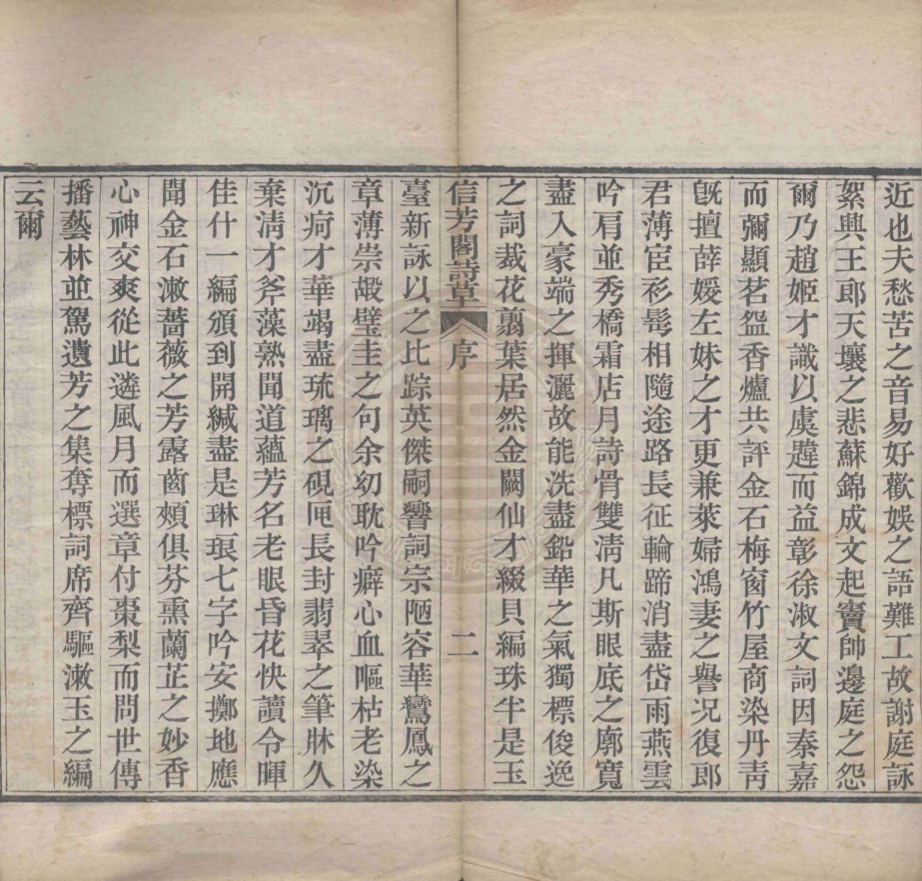 近也夫愁苦之音易好歡娛之語難工故謝庭詠
絮興王郎天壤之悲蘇錦成文起竇帥邊庭之怨
爾乃趙姬才識以虞韙而益彰徐淑文詞因秦嘉
而彌顯茗盌香爐共評金石梅窗竹屋商染丹靑
旣擅薛媛左妹之才更兼萊婦鴻妻之譽况復郎
君薄宦衫髩相隨途路長征輪蹄消盡岱雨燕雲
吟肩並秀橋霜店月詩骨雙淸凡斯眼底之廓寬
盡入豪端之揮灑故能洗盡鉛華之氣獨標俊逸
之詞裁花翦葉居然金闕仙才綴貝編珠半是玉
信芳閣詩草 序 二
臺新詠以之比踪英傑嗣響詞宗陋容華鸞鳳之
章薄崇嘏璧圭之句余幼耽吟癖心血嘔枯老染
沉疴才華竭盡琉璃之硯匣長封翡翠之筆牀久
棄淸才斧藻熟聞道蘊芳名老眼昏花快讀令暉
佳什一編頒到開緘盡是琳琅七字吟安擲地應
聞金石漱薔薇之芳露齒頰俱芬熏蘭芷之妙香
心神交爽從此遴風月而選章付棗梨而問世傳
播藝林並駕遺芳之集奪標詞席齊驅漱玉之編
云爾